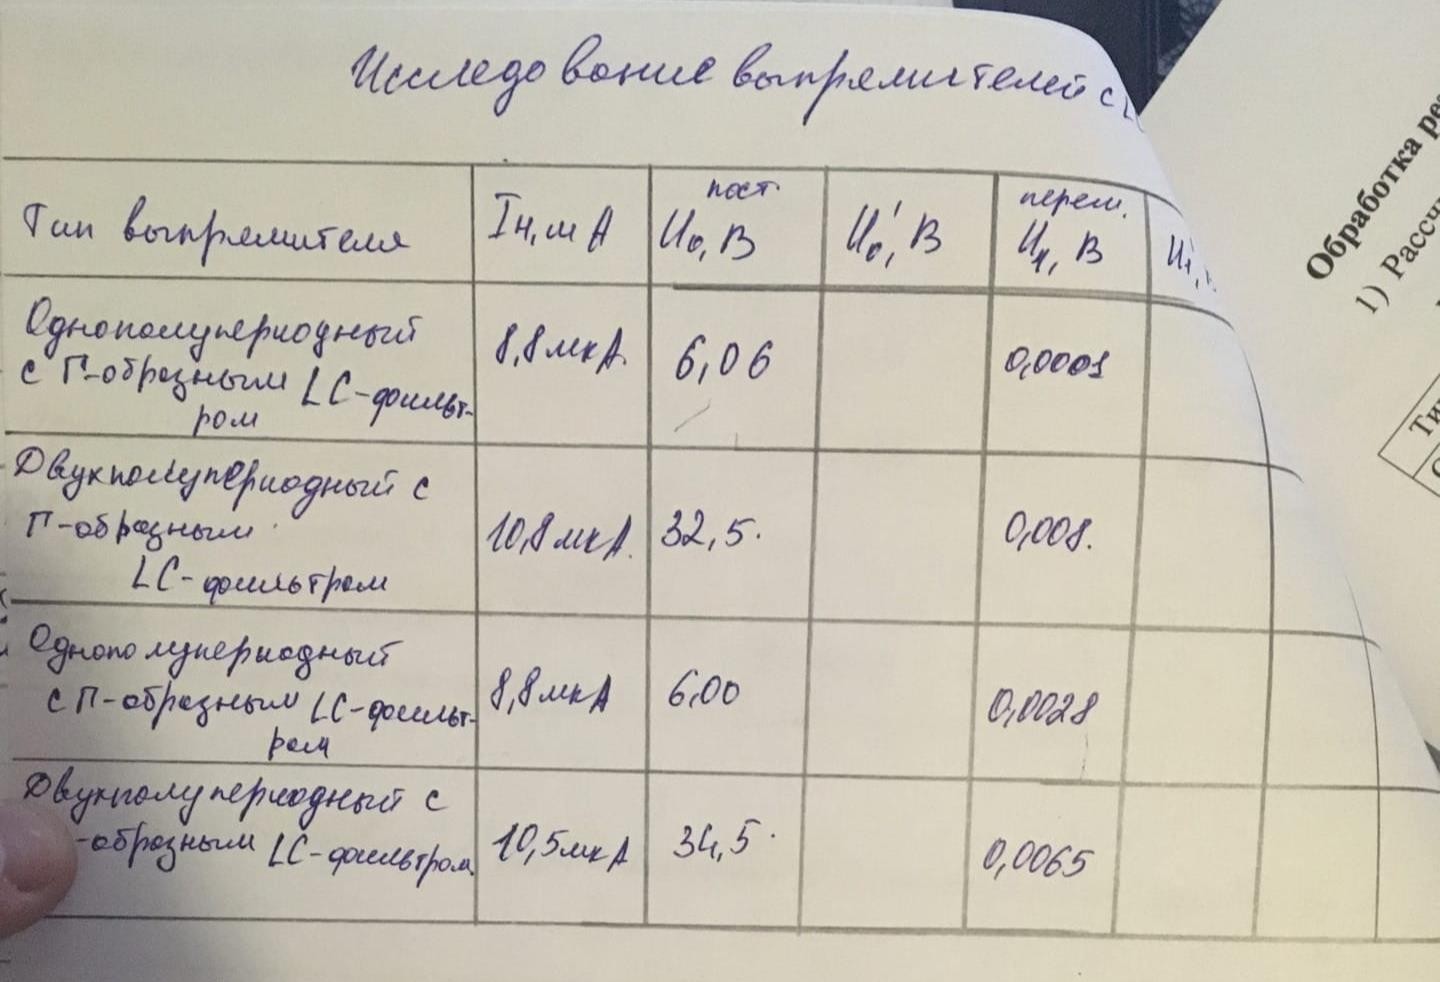 Исследование выпрямителей с L
Тип выпрямителя
Iн, мА
пост.
U₀, В
U₀', В
перем.
U₁, В
U₁',
Однополупериодный
с Г-образным LC-фильт-
ром
8,8 мкА.
6,06
0,0001
Двухполупериодный с
Г-образным
LC-фильтром
10,8 мкА.
32,5.
0,008.
Однополупериодный
с П-образным LC-фильт-
ром
8,8 мкА
6,00
0,0028
Двухполупериодный с
-образным LC-фильтром.
10,5 мкА
34,5
0,0065
Обработка рез
1) Рассчи
Ти